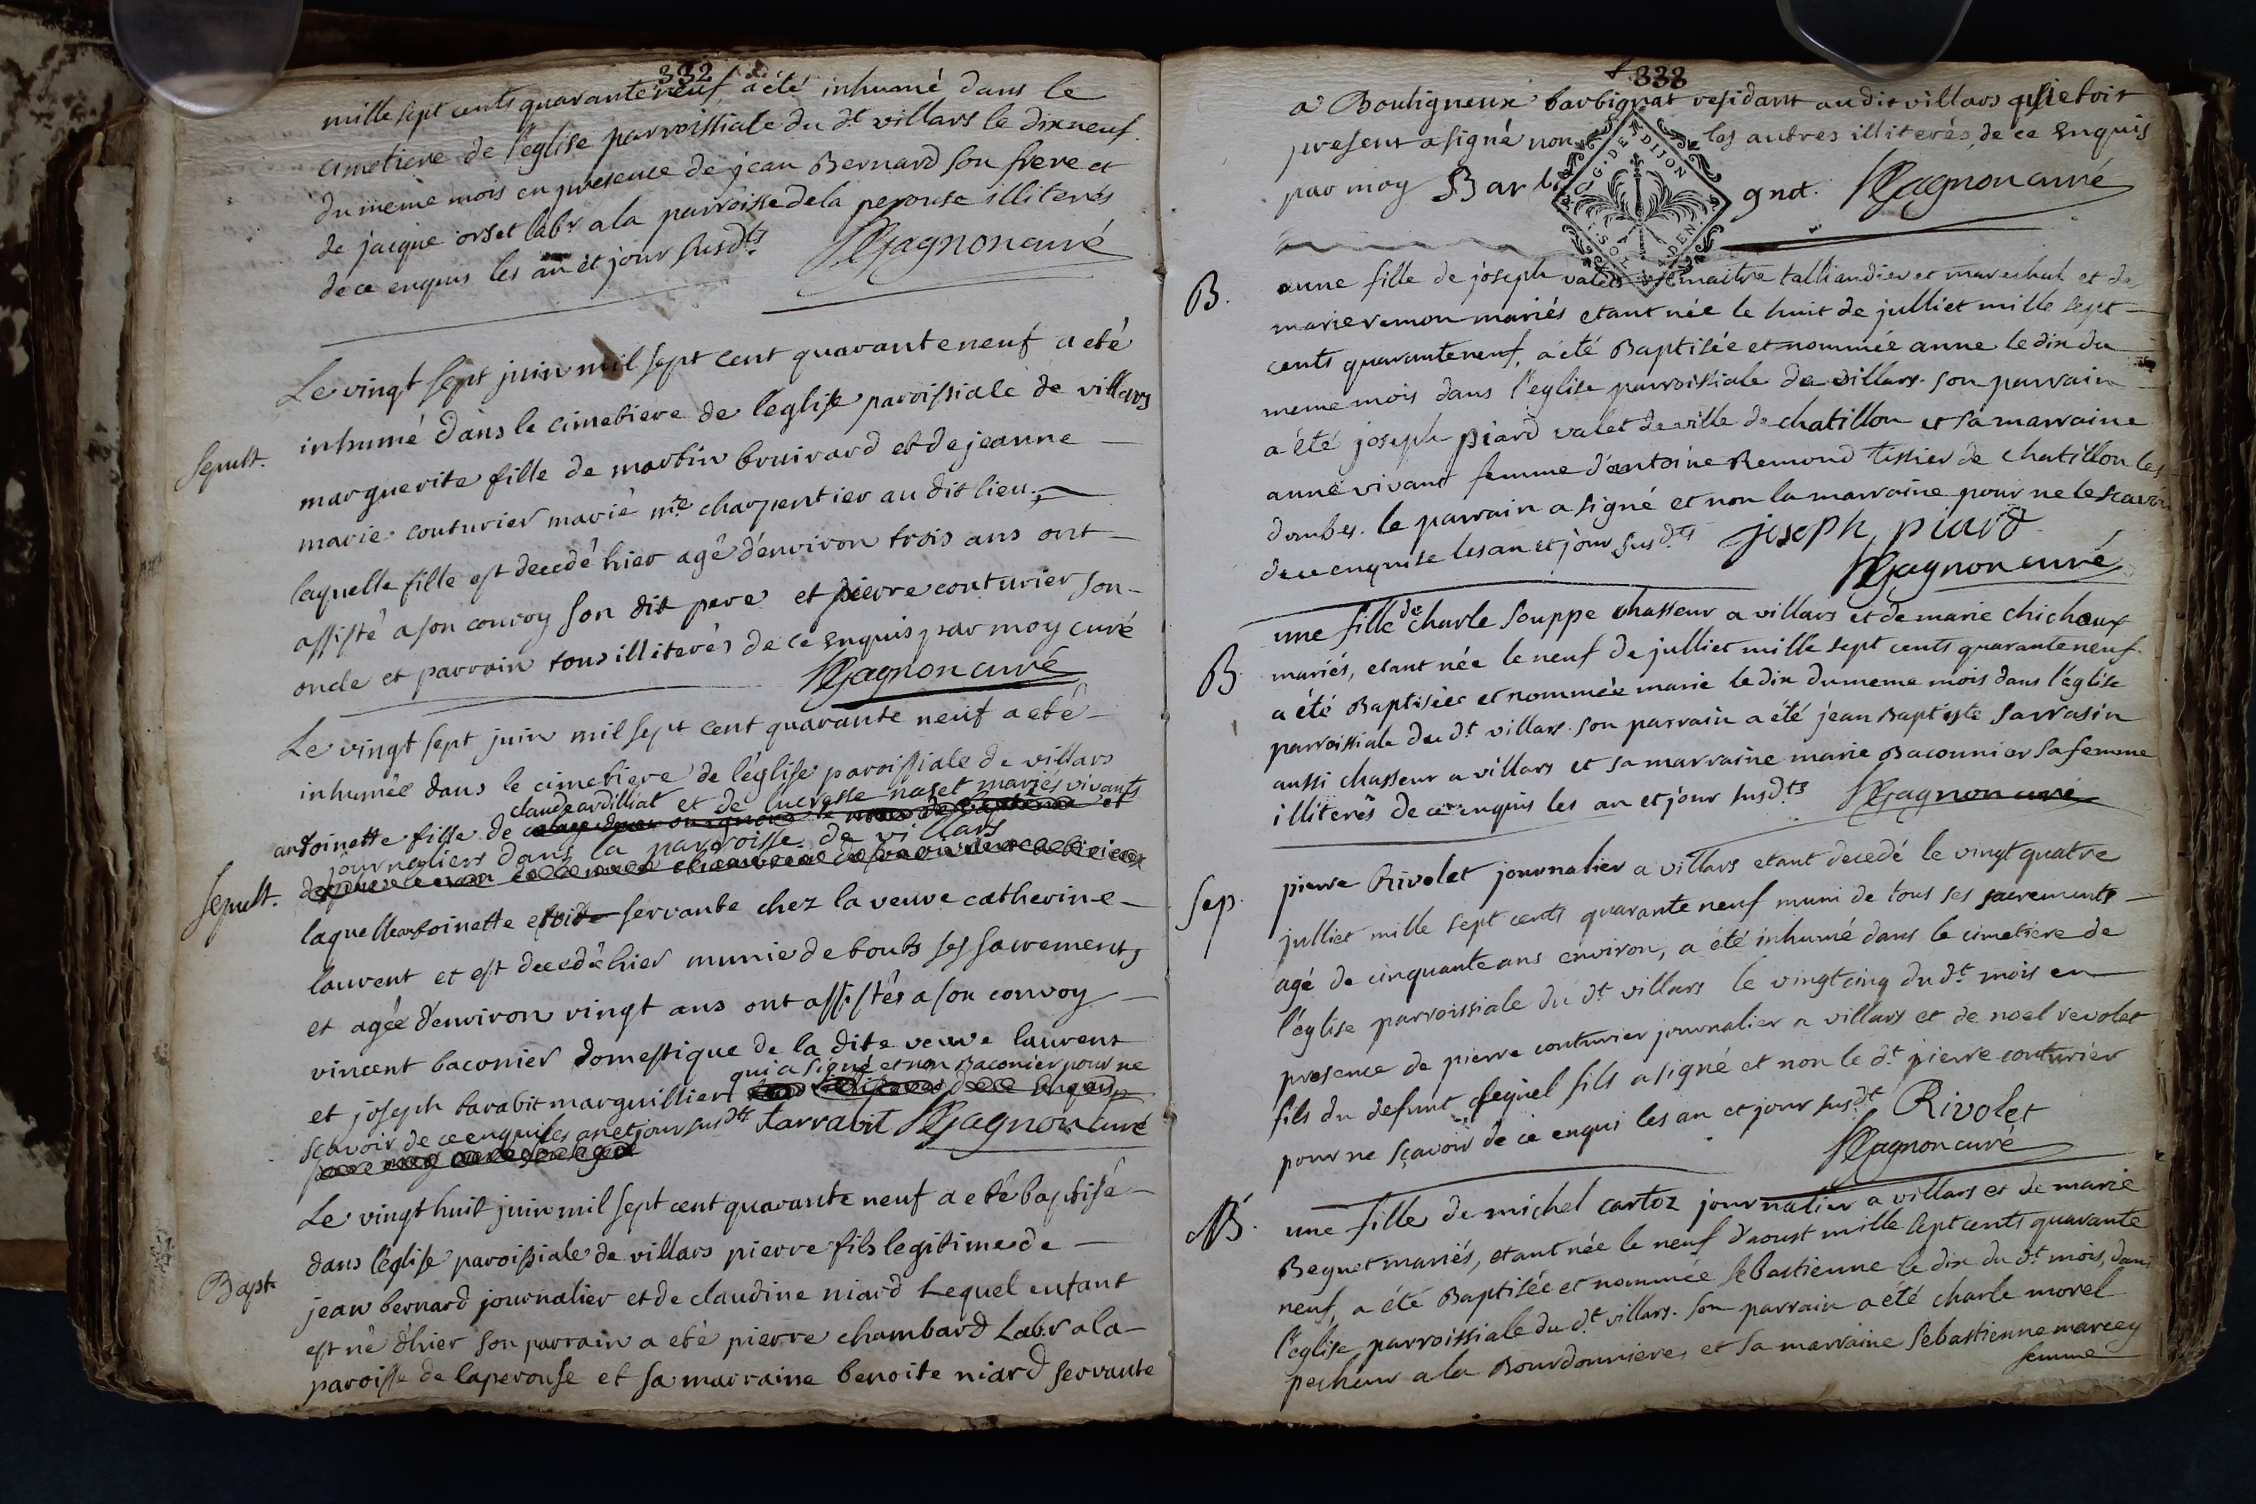 332
mille sept cents quarante neuf a été inhumé dans le
cimetiere de l'eglise parroissiale du dt villars le dixneuf
du meme mois en presence de jean Bernard son frere et
de jacque orset labr a la parroisse de la perouse illiterés
de ce enquis les an et jour susdts Gagnon curé
Le vingt sept juin mil sept cent quarante neuf a eté
Sepult. inhumé dans le cimetiere de l'eglise paroissiale de villars
marguerite fille de martin bruirard et de jeanne
marie couturier marié me charpentier au dit lieu
laquelle fille est decedé hier agé d'environ trois ans ont
assisté a son convoy son dit pere et pierre couturier son
oncle et parrain tous illiterés de ce enquis par moy curé
Gagnon curé
Le vingt sept juin mil sept cent quarante neuf a eté
inhumée dans le cimetiere de l'église paroissiale de villars
claude ardilliat et de lucresse naset mariés vivants
antoinette fille de
journaliers dans la parroisse de villars
Sepult.
laquelle antoinette etoit servante chez la veuve catherine
laurent et est decedé hier munie de touts ses sacrements
et agée d'environ vingt ans ont assistés a son convoy
vincent baconier domestique de la dite veuve laurent
qui a signé et non Baconier pour ne
et joseph tarabit marguillier
sçavoir de ce enquis les an et jour susdts tarrabit Gagnon curé
Le vingt huit juin mil sept cent quarante neuf a eté baptisé
dans l'église paroissiale de villars pierre fils legitime de
Bapt. jean bernard journalier et de claudine niard Lequel enfant
est né d'hier son parrain a eté pierre chambard Labr a la
paroisse de laperouse et sa marraine benoite niard servante
333
a Bouligneux barbignat residant au dit villars qui etoit
present a signé non les autres illiterés, de ce enquis
par moy Barbi gnat. Gagnon curé
G. DE DIJON
B. anne fille de joseph maitre talliandier et marechal et de
marie remon mariés etant née le huit de julliet mille sept
cents quarante neuf, a été Baptisée et nommée anne le dix du
meme mois dans l'eglise parroissiale de villars. son parrain
a été joseph piard valet de ville de chatillon et sa marraine
anne vivant femme d'antoine Remond tissier de chatillon les
dombes. le parrain a signé et non la marraine pour ne le scavoir
de ce enquise les an et jour susdts joseph piard
Gagnon curé
une fille de charle souppe chasseur a villars et de marie chichoux
B. mariés, etant née le neuf de julliet mille sept cents quarante neuf
a été Baptisée et nommée marie le dix du meme mois dans l'église
parroissiale du dt villars. son parrain a été jean Baptiste sarrasin
aussi chasseur a villars et sa marraine marie Baconnier sa femme
illiterés de ce enquis les an et jour susdts Gagnon curé
Sep. pierre Rivolet journalier a villars etant decedé le vingt quatre
julliet mille sept cents quarante neuf muni de tous ses sacrements
agé de cinquante ans environ, a été inhumé dans le cimetiere de
l'église parroissiale du dt villars le vingt cinq du dt mois en
presence de pierre couturier journalier a villars et de noel revolet
fils du defunt lequel fils a signé et non le dt pierre couturier
pour ne sçavoir de ce enqui les an et jour susdt Rivolet
Gagnon curé
B. une fille de michel cartoz journalier a villars et de marie
Beguet mariés, etant née le neuf d'aoust mille sept cents quarante
neuf, a été Baptisée et nommée sebastienne le dix du dt mois, dans
l'église parroissiale du dt villars. son parrain a été charle morel
pecheur a la Bourdonniere, et sa marraine sebastienne marcey
femme